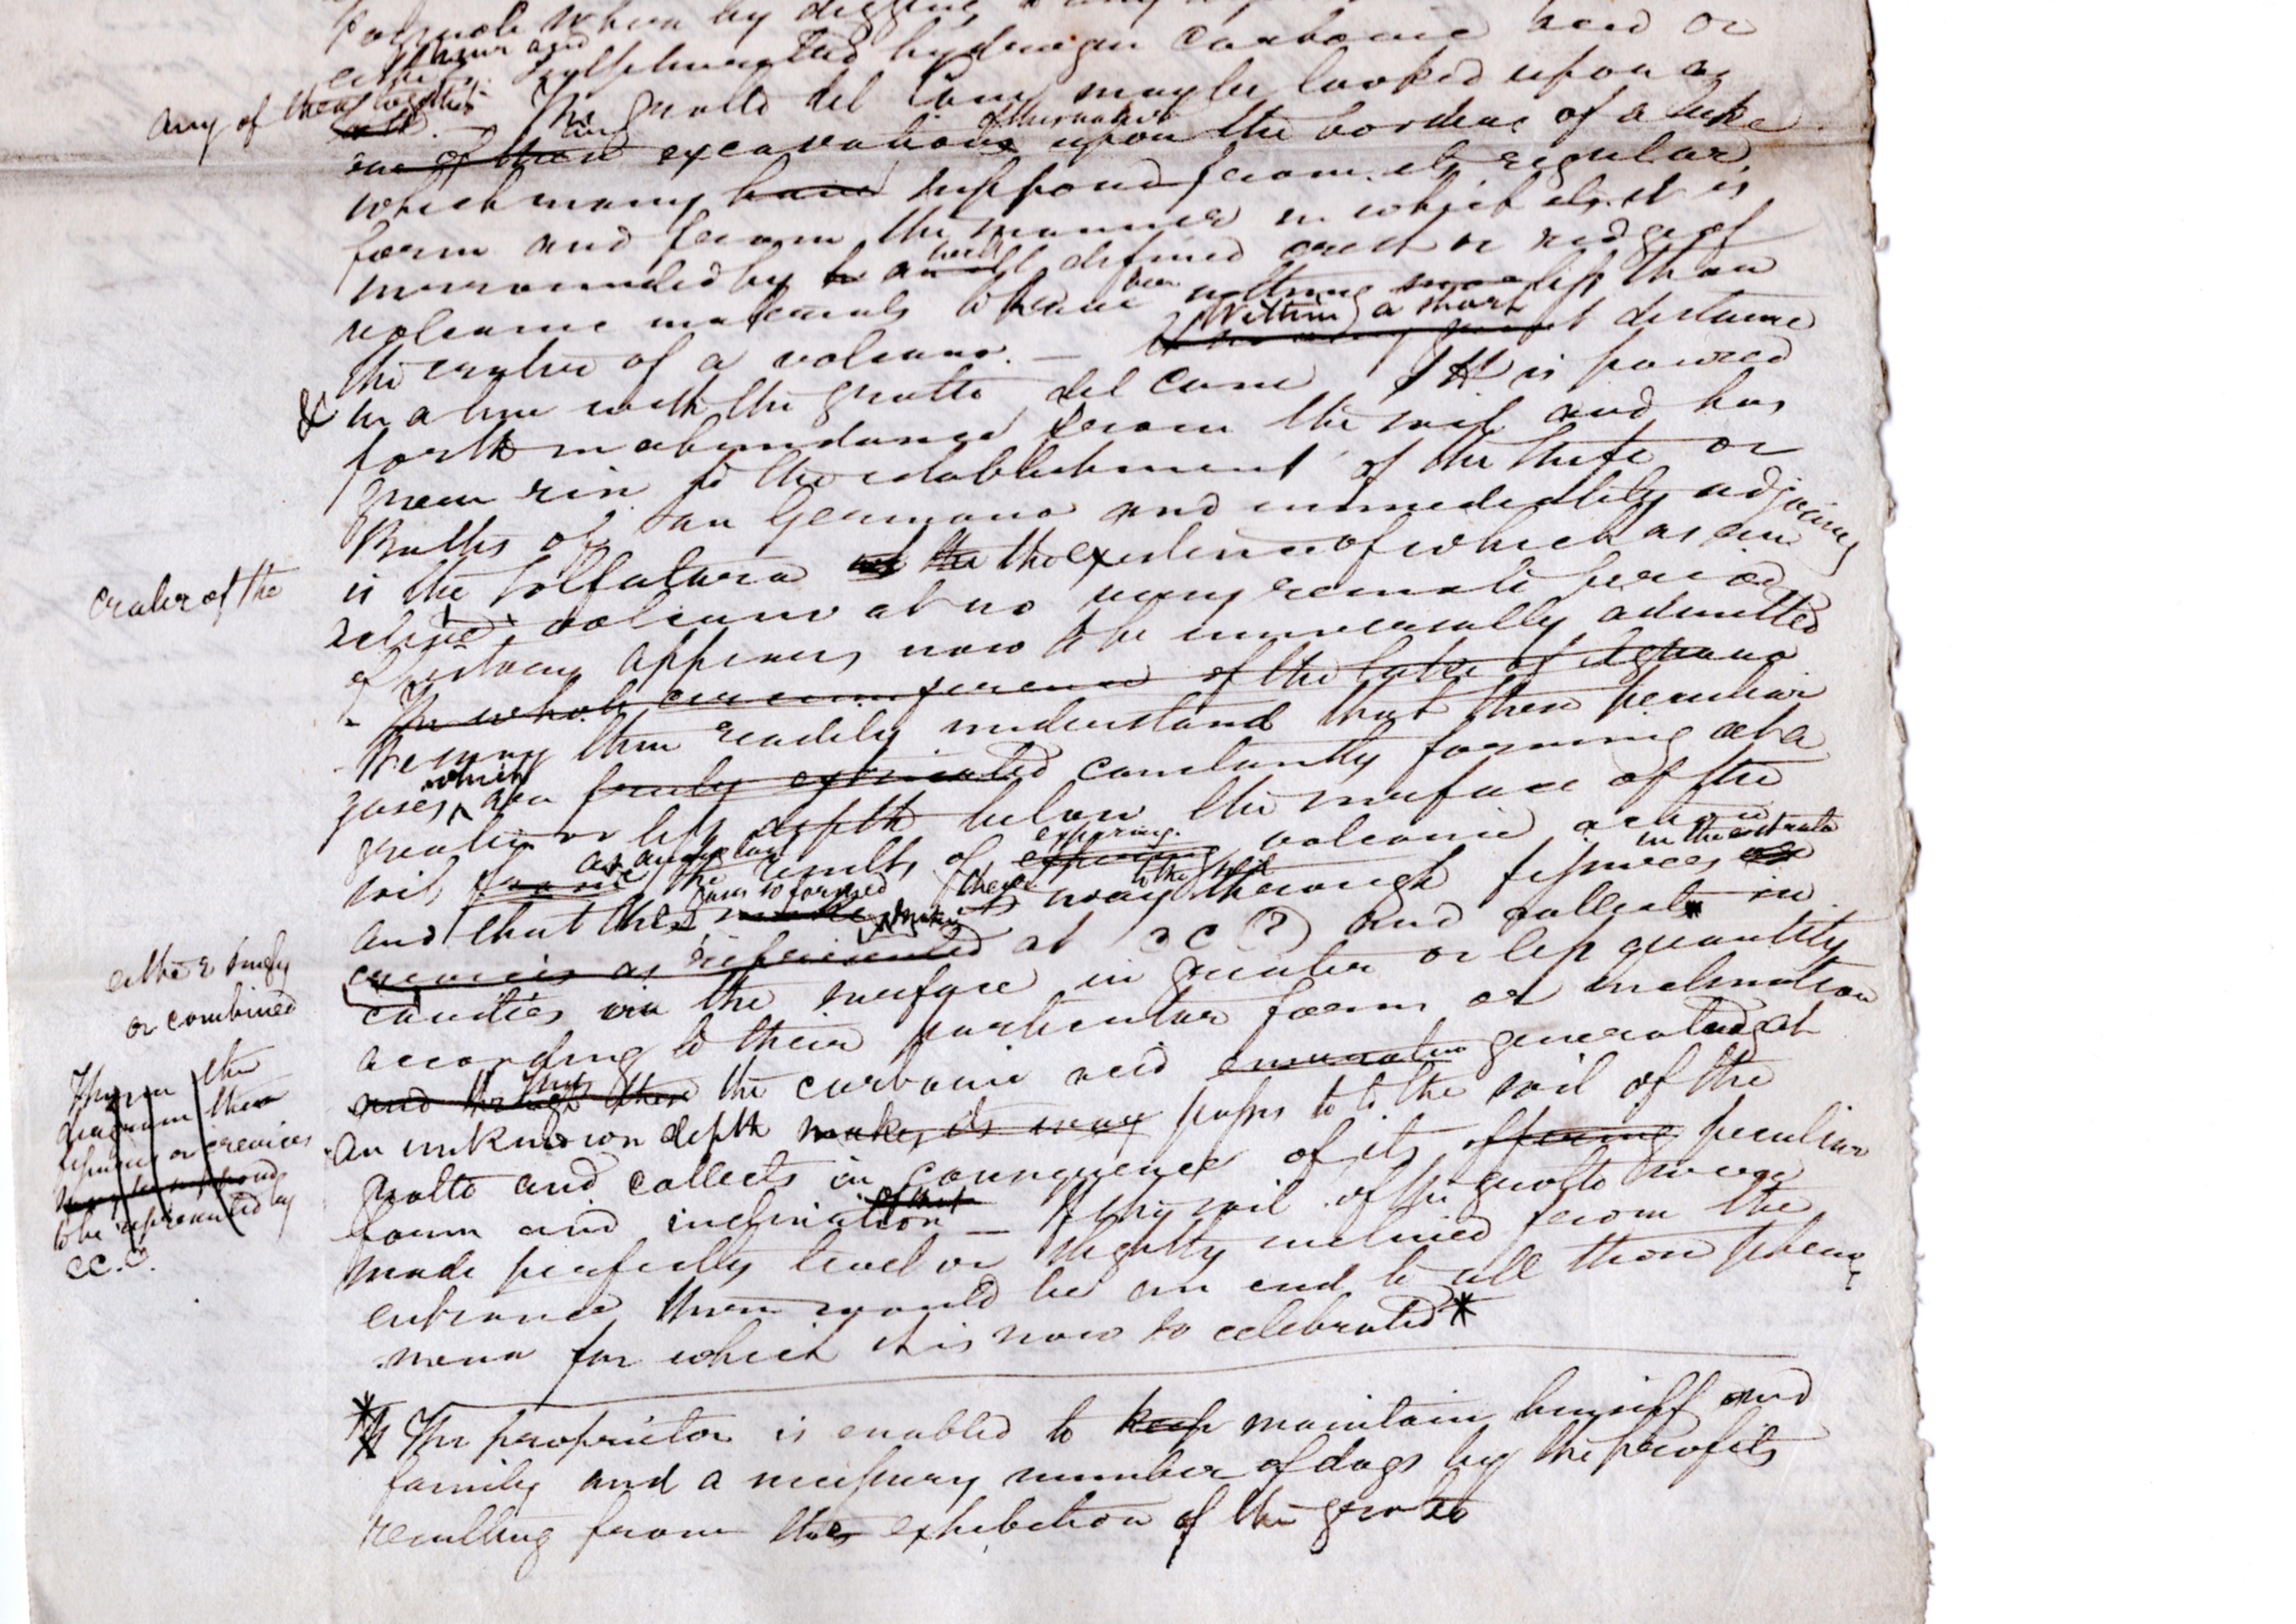 where by digging
hydrogen carbonic acid or
any of them together
The grotto del Cane may be looked upon as
one of these excavations upon the borders of a lake
of this nature
which many have suppose from its regular
form and from the manner in which it is
surrounded by a well defined crest or ridge of
volcanic materials to have been nothing more less than
the crater of a volcano. — Within a short distance
& in a line with the grotto del Cane it is poured
forth in abundance from the soil and has
given rise to the establishment of the Stufe or
Baths of San Germano and immediately adjoining
is the Solfatara and the the existence of which as an
crater of the
active volcano at no very remote period
of history appears now to be universally admitted
- The whole circumference of the lake of Agnano
We may then readily understand that these peculiar
gases which are freely extricated constantly forming at a
greater or less depth below the surface of the
soil from are among the results of expiring volcanic action
and that these gases so formed make their way to the through fissures in the strata
crevices as represented at cc(?) and collect in
cavities in the surface in greater or less quantity
either singly
or combined
according to their particular form or inclination
and through these Thus the carbonic acid emanates generated at
an unknown depth makes its way passes to the soil of the
grotto and collects in consequence of its offering peculiar
form and inclination — If the soil of the grotto were
made perfectly level or slightly inclined from the
entrance there would be an end to all those pheno-
mena for which it is now so celebrated *
Thus in the
diagram these
fissures or crevices
may be supposed
to be represented by
cc.c.
* The proprietor is enabled to keep maintain himself and
family and a necessary number of dogs by the profits
resulting from the exhibition of the grotto